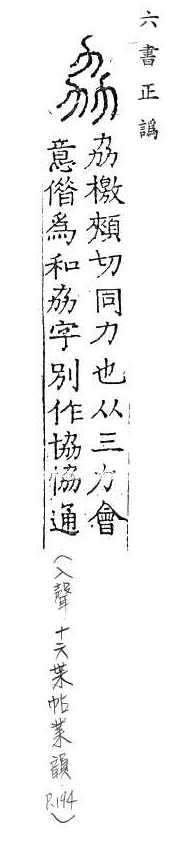 六書正譌
劦
劦檄頰切同力也从三力會
意偕為和劦字別作協恊通
(入聲 十六葉帖業韻 P.194)